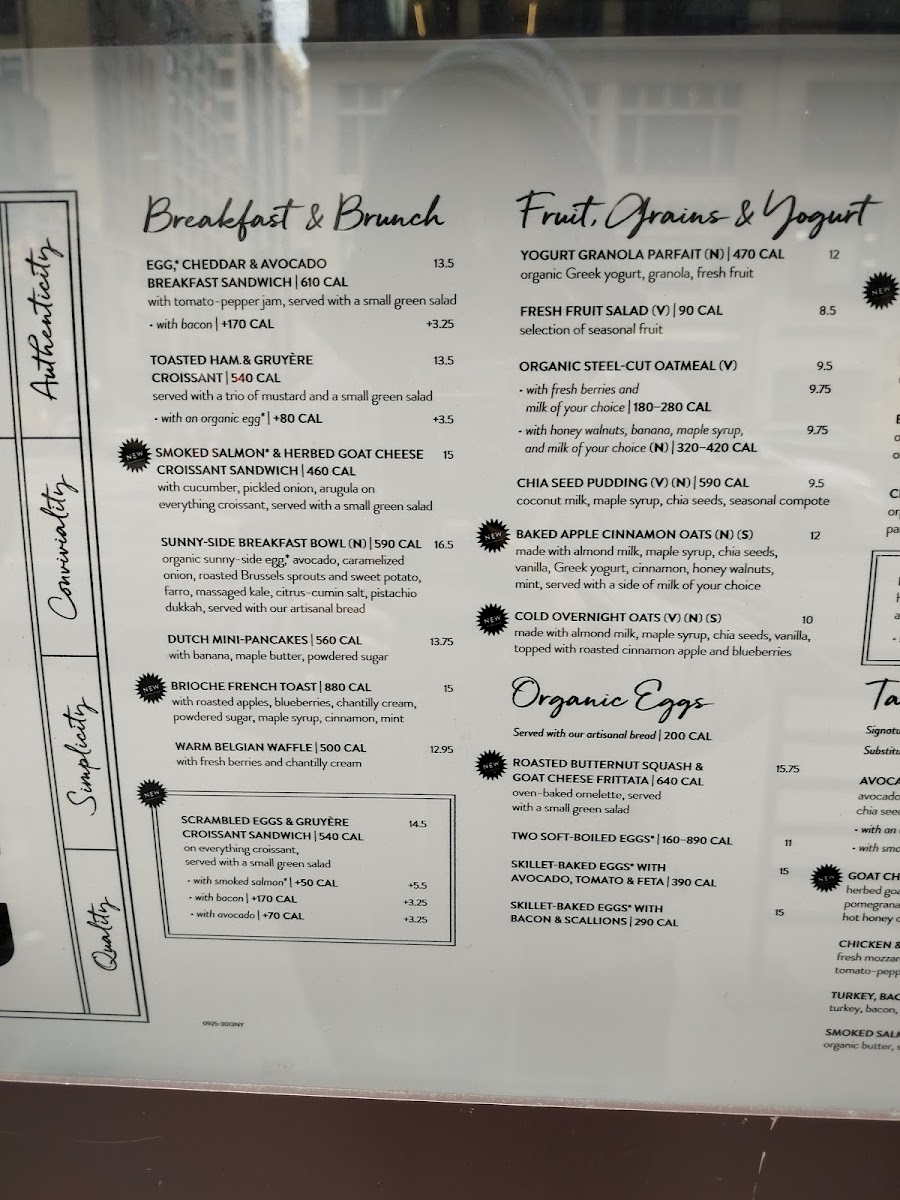 Authenticity
Conviviality
Simplicity
Quality
Breakfast & Brunch
EGG,* CHEDDAR & AVOCADO 13.5
BREAKFAST SANDWICH | 610 CAL
with tomato-pepper jam, served with a small green salad
• with bacon | +170 CAL +3.25
TOASTED HAM & GRUYÈRE 13.5
CROISSANT | 540 CAL
served with a trio of mustard and a small green salad
• with an organic egg* | +80 CAL +3.5
NEW
SMOKED SALMON* & HERBED GOAT CHEESE 15
CROISSANT SANDWICH | 460 CAL
with cucumber, pickled onion, arugula on
everything croissant, served with a small green salad
SUNNY-SIDE BREAKFAST BOWL (N) | 590 CAL 16.5
organic sunny-side egg,* avocado, caramelized
onion, roasted Brussels sprouts and sweet potato,
farro, massaged kale, citrus-cumin salt, pistachio
dukkah, served with our artisanal bread
DUTCH MINI-PANCAKES | 560 CAL 13.75
with banana, maple butter, powdered sugar
NEW
BRIOCHE FRENCH TOAST | 880 CAL 15
with roasted apples, blueberries, chantilly cream,
powdered sugar, maple syrup, cinnamon, mint
WARM BELGIAN WAFFLE | 500 CAL 12.95
with fresh berries and chantilly cream
NEW
SCRAMBLED EGGS & GRUYÈRE 14.5
CROISSANT SANDWICH | 540 CAL
on everything croissant,
served with a small green salad
• with smoked salmon* | +50 CAL +5.5
• with bacon | +170 CAL +3.25
• with avocado | +70 CAL +3.25
0925-3013NY
Fruit, Grains & Yogurt
YOGURT GRANOLA PARFAIT (N) | 470 CAL 12
organic Greek yogurt, granola, fresh fruit
FRESH FRUIT SALAD (V) | 90 CAL 8.5
selection of seasonal fruit
ORGANIC STEEL-CUT OATMEAL (V) 9.5
• with fresh berries and 9.75
milk of your choice | 180–280 CAL
• with honey walnuts, banana, maple syrup, 9.75
and milk of your choice (N) | 320–420 CAL
CHIA SEED PUDDING (V) (N) | 590 CAL 9.5
coconut milk, maple syrup, chia seeds, seasonal compote
NEW
BAKED APPLE CINNAMON OATS (N) (S) 12
made with almond milk, maple syrup, chia seeds,
vanilla, Greek yogurt, cinnamon, honey walnuts,
mint, served with a side of milk of your choice
NEW
COLD OVERNIGHT OATS (V) (N) (S) 10
made with almond milk, maple syrup, chia seeds, vanilla,
topped with roasted cinnamon apple and blueberries
Organic Eggs
Served with our artisanal bread | 200 CAL
NEW
ROASTED BUTTERNUT SQUASH & 15.75
GOAT CHEESE FRITTATA | 640 CAL
oven-baked omelette, served
with a small green salad
TWO SOFT-BOILED EGGS* | 160–890 CAL 11
SKILLET-BAKED EGGS* WITH 15
AVOCADO, TOMATO & FETA | 390 CAL
SKILLET-BAKED EGGS* WITH 15
BACON & SCALLIONS | 290 CAL
NEW
Ta
Signatu
Substitu
AVOCA
avocado
chia see
• with an
• with smo
NEW
GOAT CH
herbed goa
pomegrana
hot honey c
CHICKEN &
fresh mozzar
tomato-pepp
TURKEY, BAC
turkey, bacon,
SMOKED SALM
organic butter, s